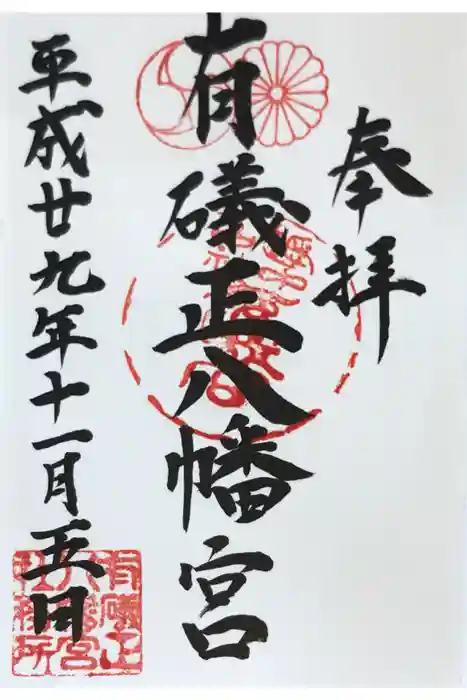 奉拝
有磯正八幡宮
平成廿九年十一月五日
有磯正
八幡宮
社務所